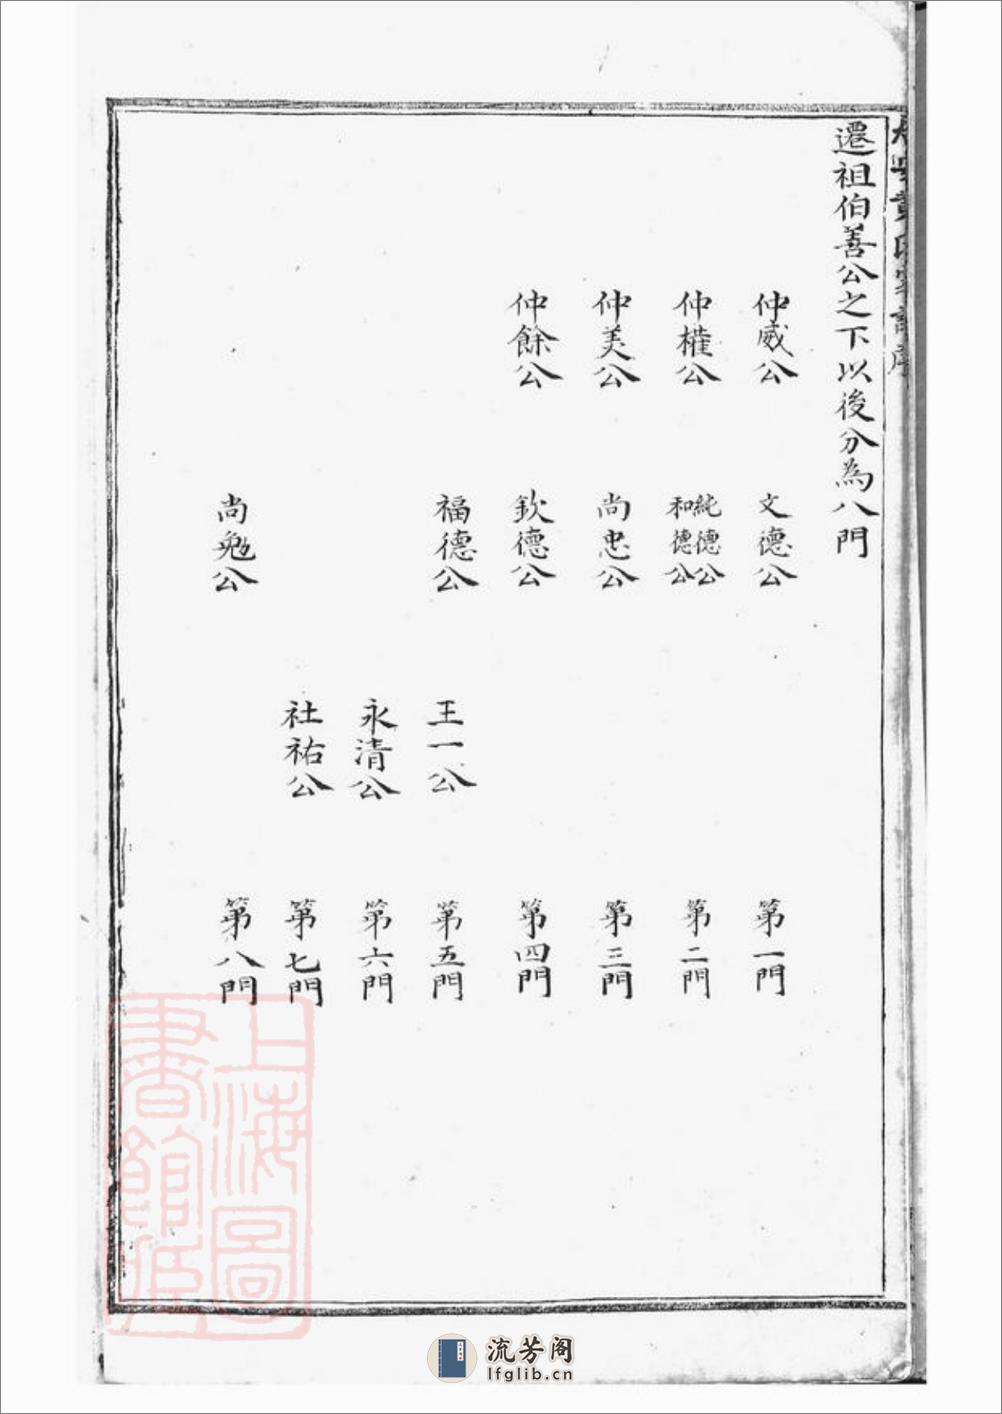 遷祖伯善公之下以後分為八門
仲威公
文德公
第一門
仲權公
純德公
和德公
第二門
仲美公
尚忠公
第三門
仲餘公
欽德公
第四門
福德公
王一公
第五門
永清公
第六門
社祐公
第七門
尚勉公
第八門
上海圖
書館藏
流芳阁
lfglib.cn